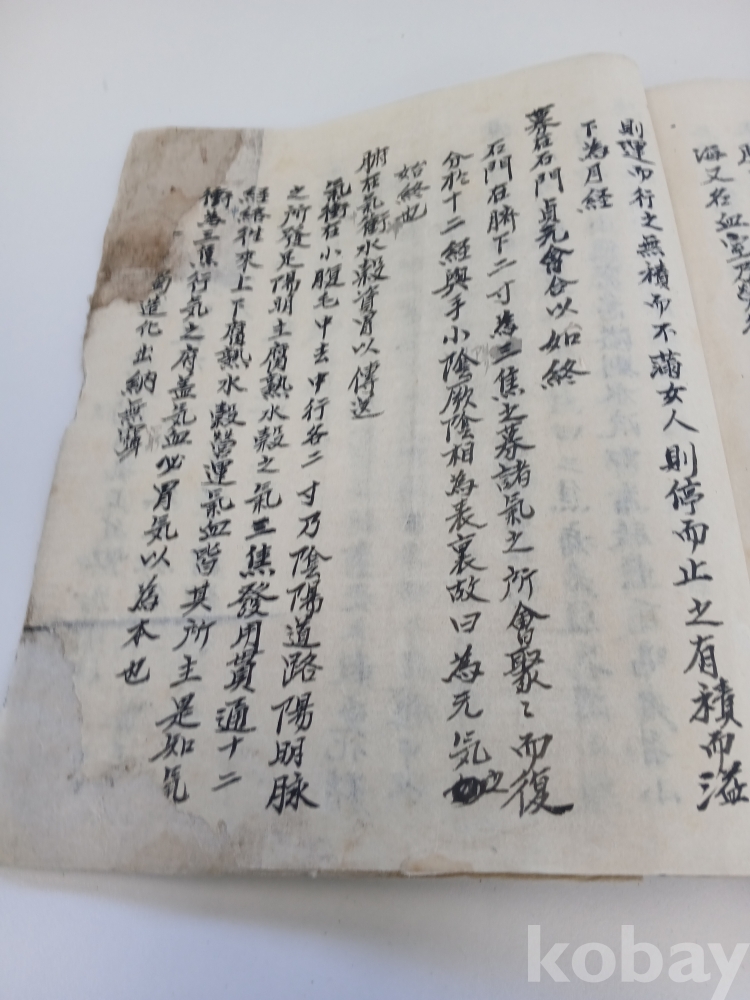 海又名血室乃
則運而行之無積而不滿女人則停而止之有積而溢
下為月經
募在石門貞元會合以始終
石門在臍下二寸為三焦之募諸氣之所會聚〻而復
分於十二經與手小陰厥陰相為表裏故曰為元氣之
始終也
腑在氣衝水穀資胃以傳送
氣衝在小腹毛中去中行各二寸乃陰陽道路陽明脉
之所發足陽明主腐熟水穀之氣三焦發用貫通十二
經絡往來上下腐熟水穀營運氣血皆其所主是知氣
衝為三焦行気之府盖気血必胃気以為本也
造化出納無
kobay